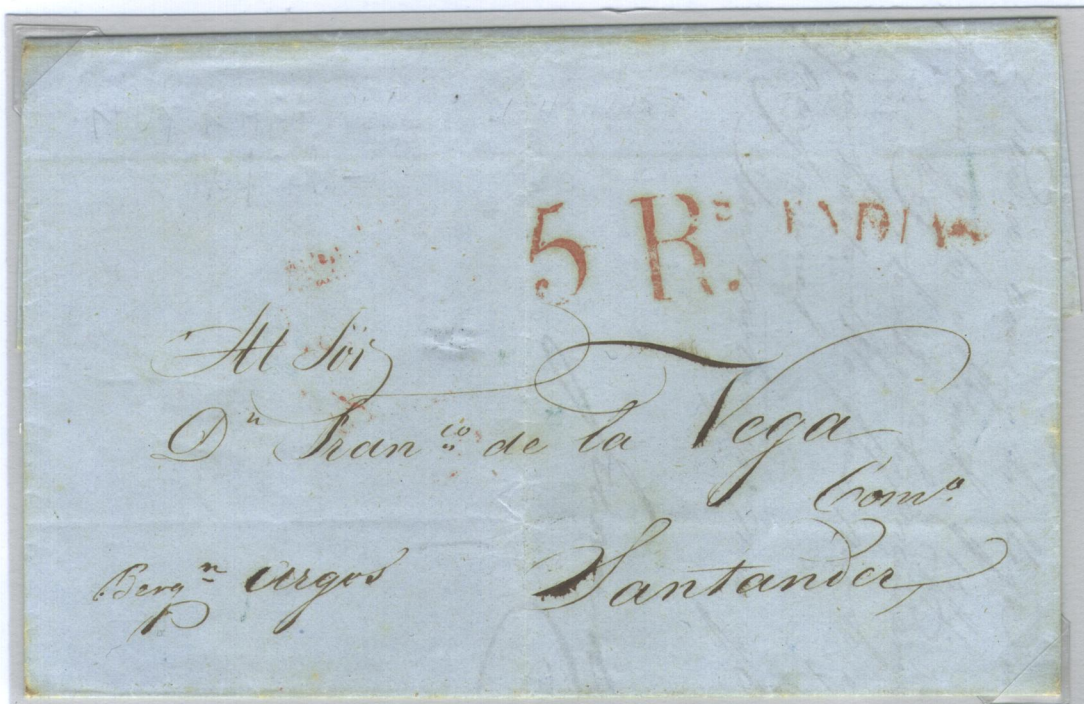 5 Rs. INDIAS
Al Sör
Dn Franco de la Vega
Como
Santander
Bergn Argos